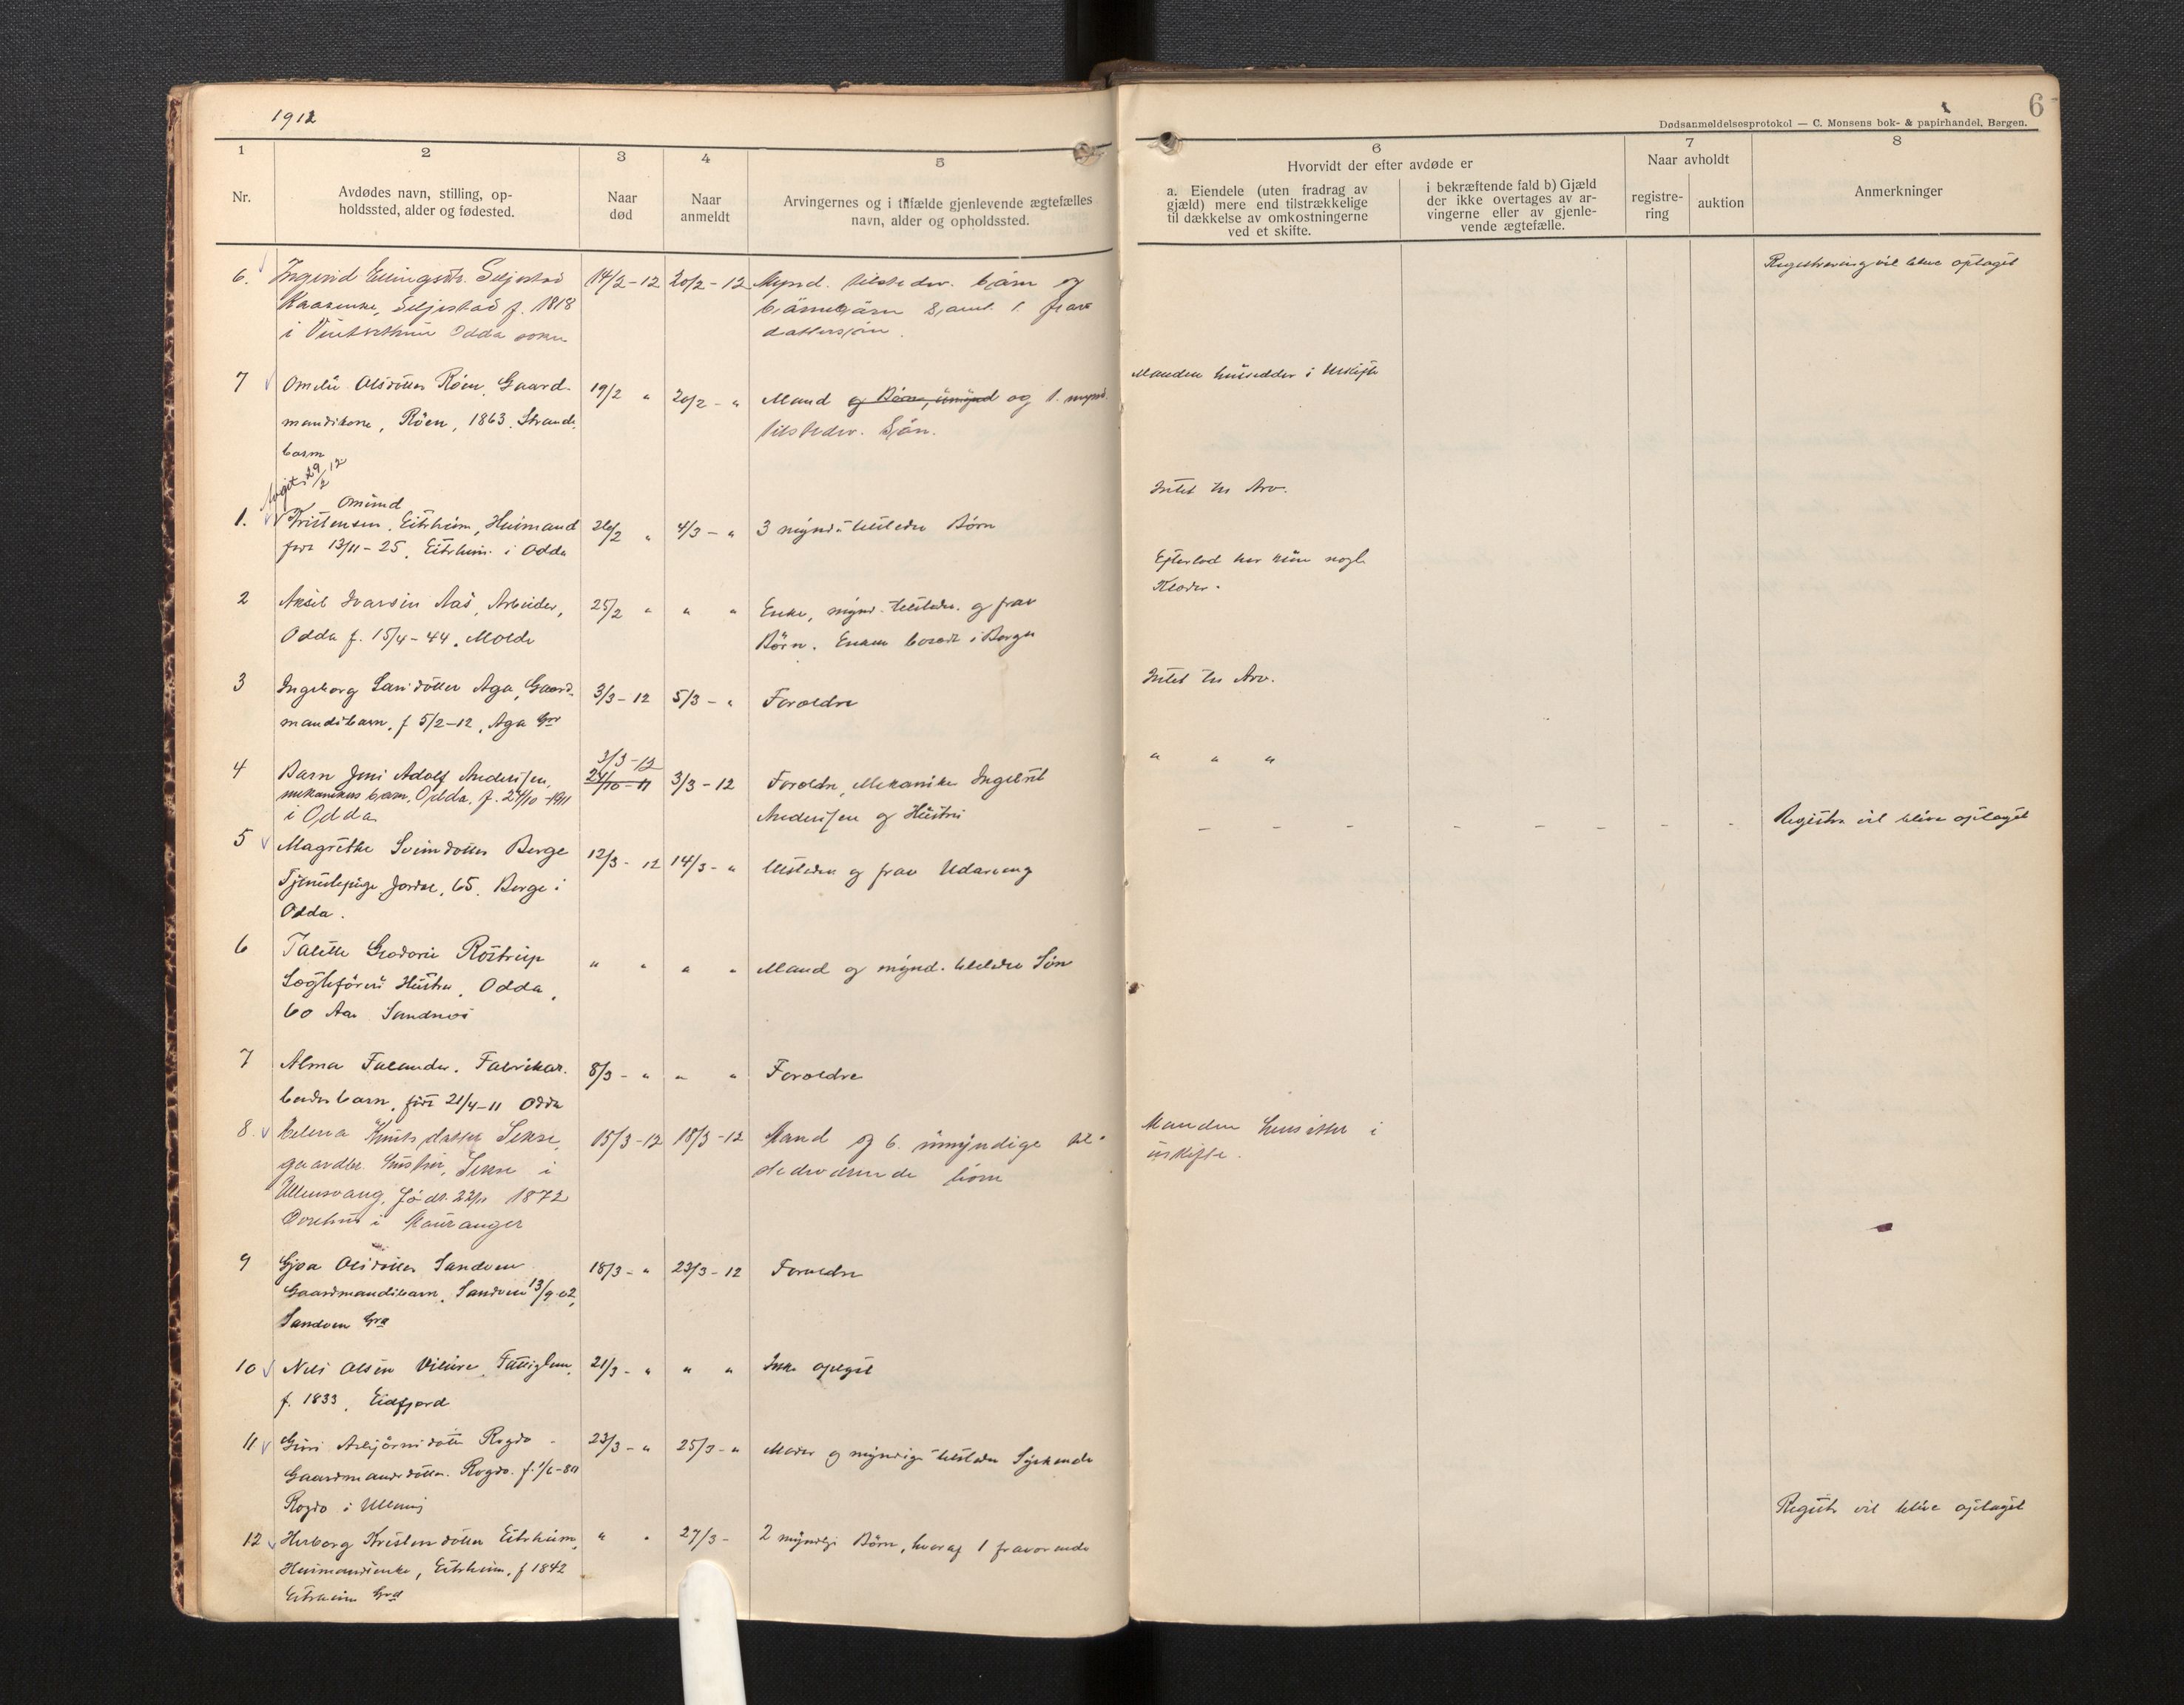 1912
6
Dødsanmeldelsesprotokol — C. Monsens bok- & papirhandel, Bergen.
1
Nr.
2
Avdødes navn, stilling, op-
holdssted, alder og fødested.
3
Naar
død
4
Naar
anmeldt
5
Arvingernes og i tilfælde gjenlevende ægtefælles
navn, alder og opholdssted.
6
Hvorvidt der efter avdøde er
a. Eiendele (uten fradrag av
gjæld) mere end tilstrækkelige
til dækkelse av omkostningerne
ved et skifte.
i bekræftende fald b) Gjæld
der ikke overtages av ar-
vingerne eller av gjenle-
vende ægtefælle.
7
Naar avholdt
registre-
ring
auktion
8
Anmerkninger
6. Ingerid Ellingsdtr. Seljestad 14/2-12 20/2-12 Mynd. tilstedev. børn og Registrering vil blive optaget
Seljestad f. 1818 børnebørn samt 1 frav
i Odda sokn dattersøn.
7 Olsdotter Røen, Gaard- 19/2 " 20/2 - " Mand og Børn, umynd og 1. mynd. Manden hensidder i Uskifte
mandskone, Røen, 1863. Strande- tilstedev. Søn.
barm
29/2 12
Omund
1. Kristensen, Eitrheim, Huimand 26/2 " 4/3 - " 3 mynd. tilstedev Børn Intet til Arv.
født 13/11-25, Eitrheim i Odda
2 Aksel Ivarsen Aas, Arbeider, 25/2 " " " Enke, mynd. tilstedev. og frav Efterlod kun nogle
Odda f. 15/4-44, Molde Børn. Enken bosat i Bergen Klæder.
3 Ingeborg Larsdotter Aga, Gaard- 3/3-12 5/3 - " Forældre Intet til Arv.
mandsbarn, f 5/2-12, Aga Grd
4 Barn Jens Adolf Anderssen, 3/3-12 24/10-11 3/3-12 Forældre, Mekaniker Ingebret " " "
mekanikers barn, Odda, f. 24/10-1911 Anderssen og Hustru
i Odda
5 Magrethe Svendotter Berge 12/3-12 14/3 - " tilstedev og frav Udarving - - - - - - - - Registr vil blive optaget
Tjenestepige Jordal, 65. Berge i
Odda.
6 Talette Rostrup " " " " Mand og mynd. tilstedev Søn
Sagførers Hustru, Odda,
60 Aar Sandnes
7 Alma Falander. Fabrikar- 8/3 - " " " Forældre
beiderbarn, født 21/4-11 Odda
8. Helena Knutsdatter Sekse, 15/3-12 18/3-12 Mand og 6 umyndige til- Manden hensitter i
gaardbr. hustru, Sekse i stedeværende børn uskifte.
Ullensvang, født 1872
i Mauranger
9 Gjøa Olsdotter Sandven 18/3 - " 23/3-12 Forældre
Gaardmandsbarn, Sandven 13/9 02,
Sandven Grd
10 Nils Olsen Vilure, Fattiglem, 21/3 - " " " Ikke opgit
f. 1833, Eidfjord
11 Guri Asbjørnsdotter Rogdo 23/3 - " 25/3 - " Moder og myndige tilstedev Syskende
Gaardmandsdotter. Rogdo.
Rogdo i Ullensv
12 Herborg Kristensdotter Eitrheim, " " 27/3 - 2 myndige Børn, hvoraf 1 fraværende Registr vil blive optaget
Huimandsenke, Eitrheim, f 1842
Eitrheim Grd